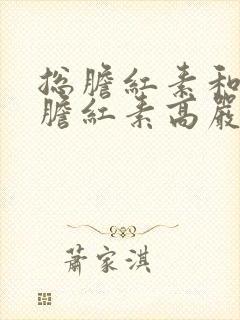 総膽紅素和
膽紅素高嚴
蕭家淇